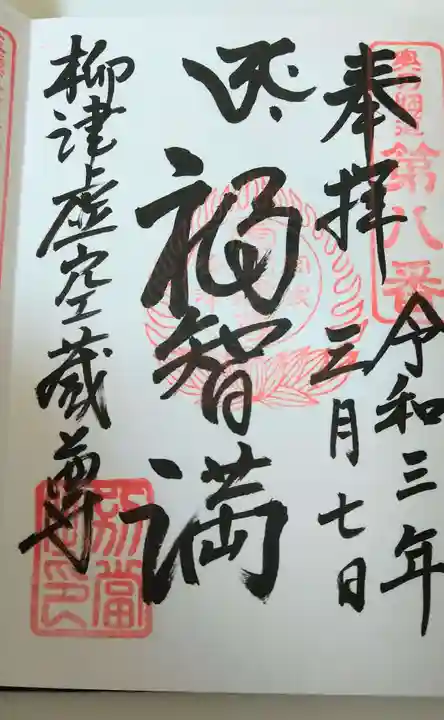 第八番
令和三年
三月七日
奉拝
福智満
柳津虚空蔵尊
別當